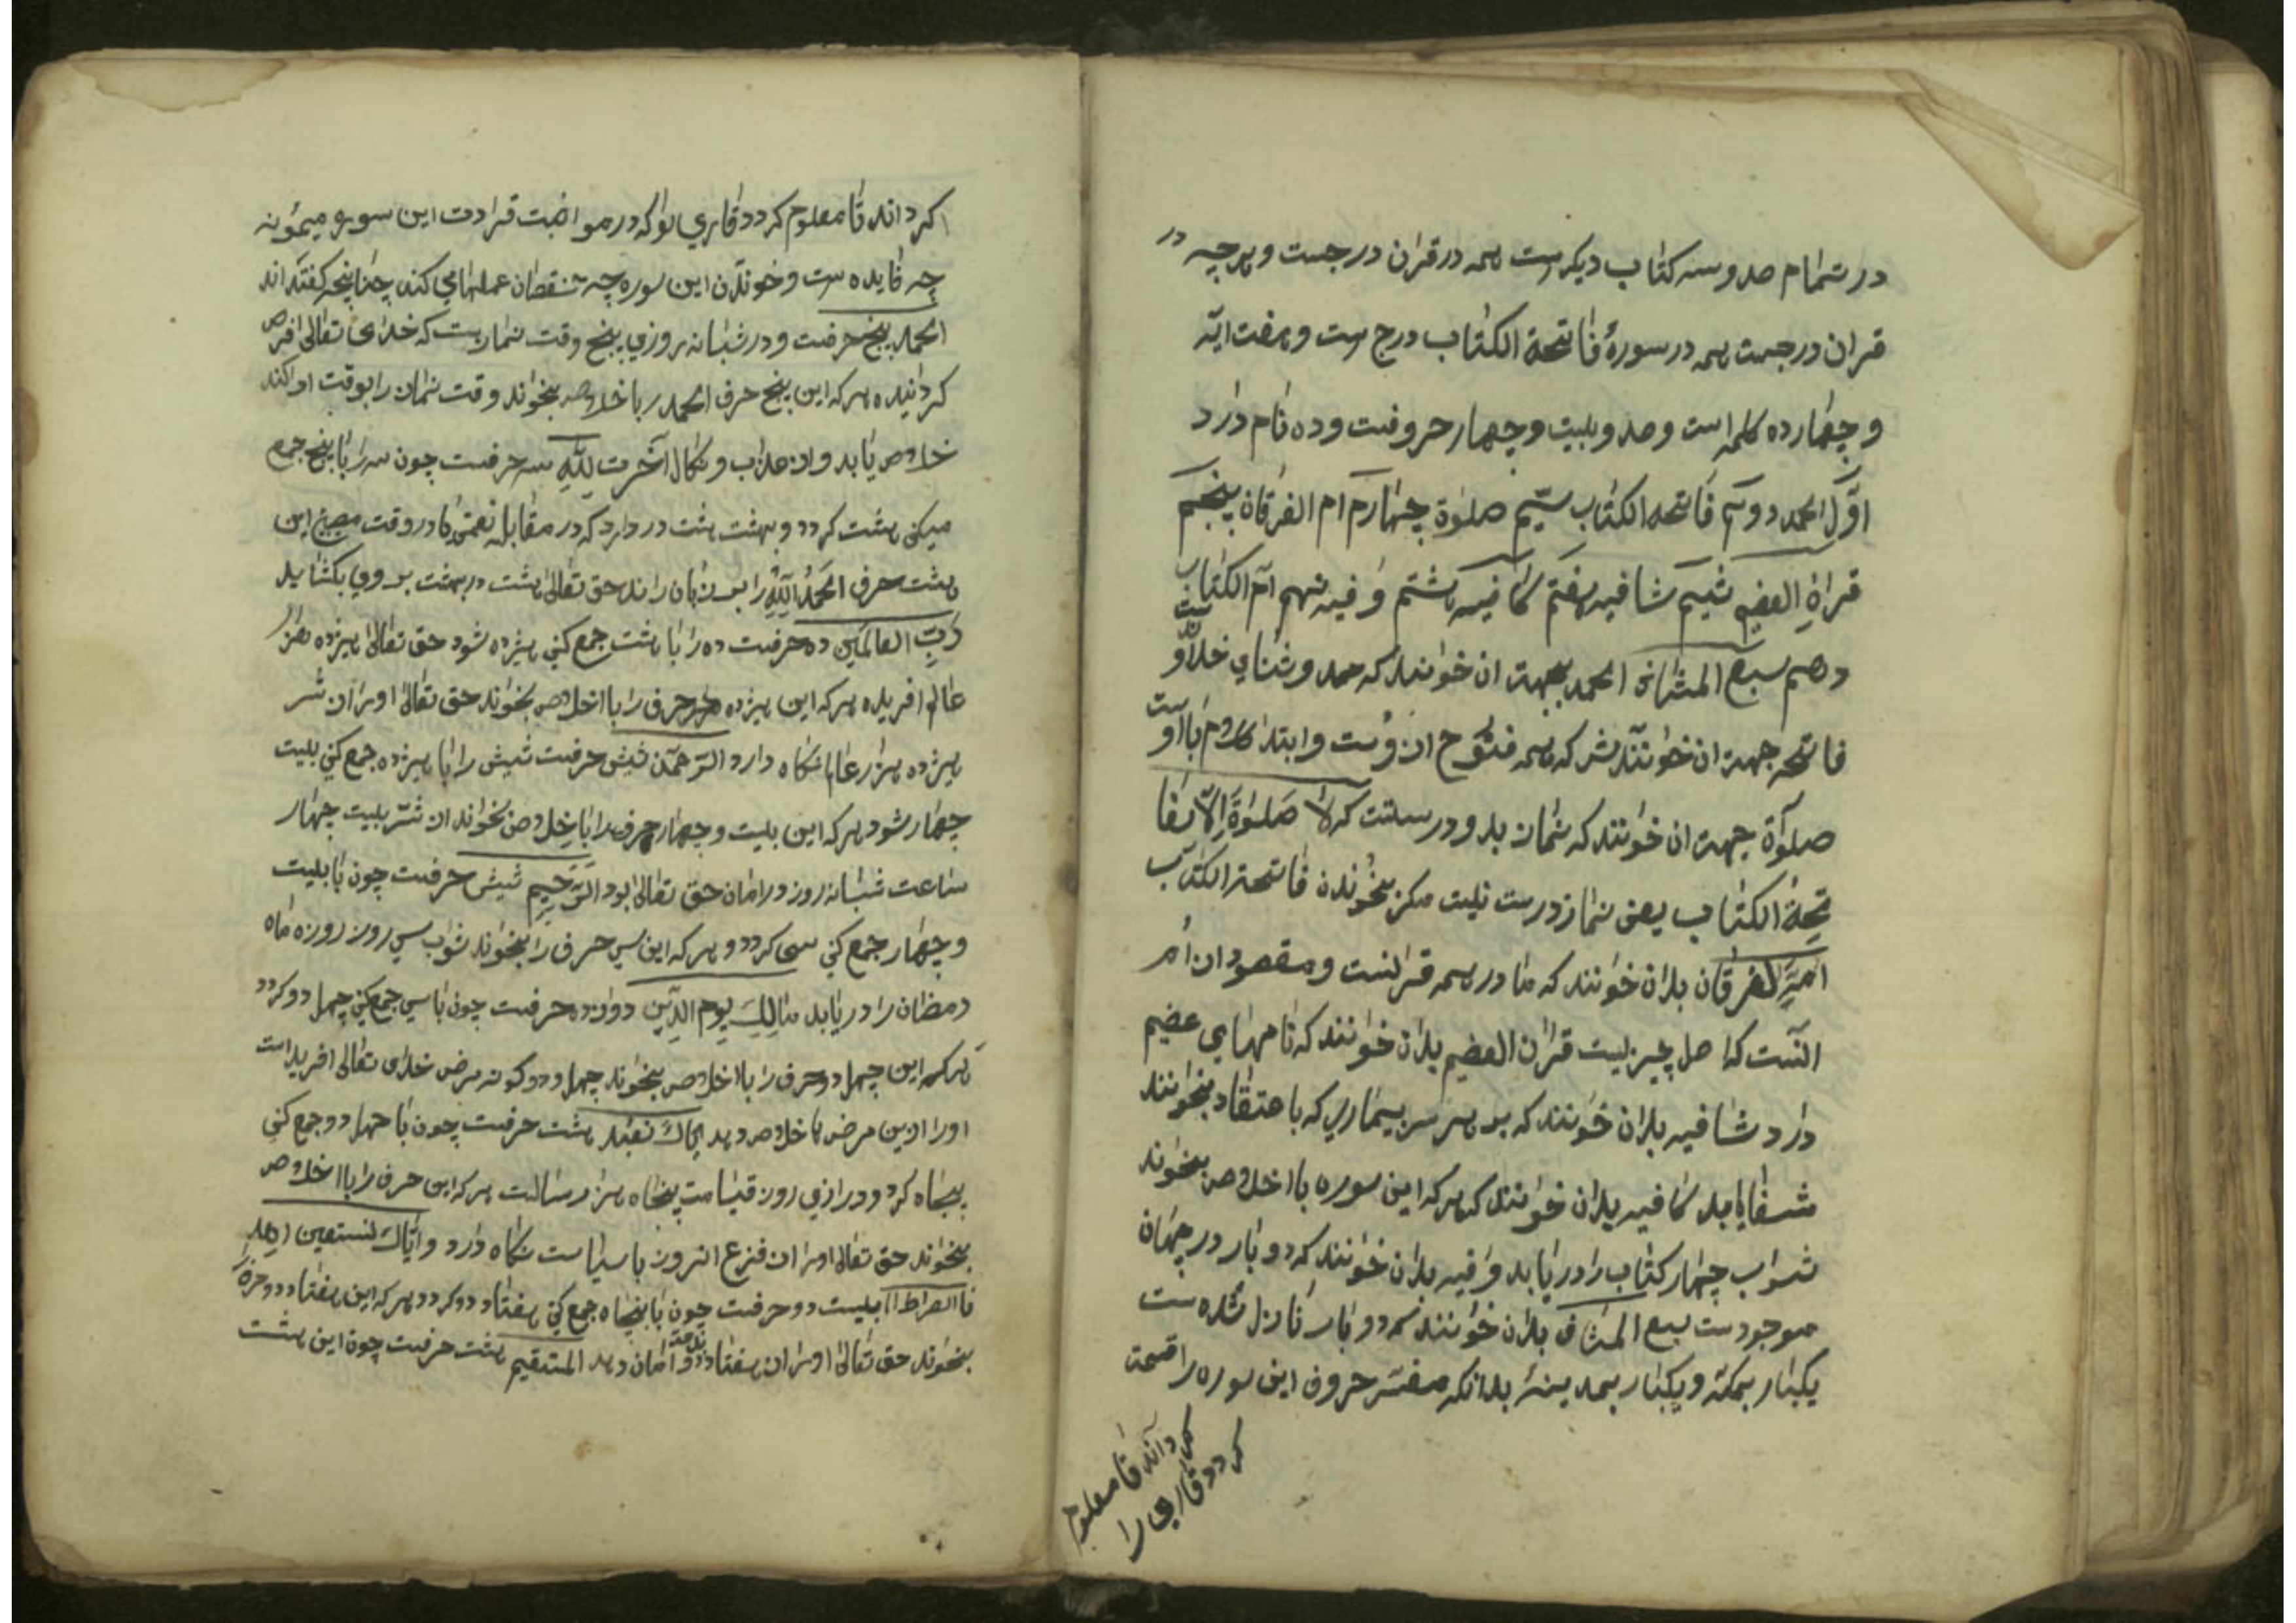 در تمام صد و سه کتاب دیکرست همه در قران درجست و هرچه در
قران درجست همه در سورۀ فاتحة الکتاب درج ست و هفت ایة
و چهارده کلمه است و صد و بلیت و چهار حروفست و ده نام دارد
اوّل الحمد دوم فاتحه الکتاب سیّم صلوة چهارم ام الفرقان پنجم
قراة العضیم شیم شافیه هفتم کافیه هشتم وافیه نهم ام الکتاب
دهم سبع المثانی الحمد بجهت ان خوانند که حمد و ثنای خداوندیست
فاتحه جهت ان خوانندش که همه فتوح ازوست و ابتدا کلام با اوست
صلوة جهت ان خوانند که نماز بدو درستت که لا صلوة الّا بفا
تحة الکتاب یعنی نماز درست نلیت مکر بخوندن فاتحة الکتاب
امّ الفرقان بدان خوانند که مادر همه قرانست و مقصود از ام
انست که اصل چیزیست قران العضیم بدان خوانند که نامهای عضیم
دارد شافیه بدان خوانند که بر هر سر بیماری که باعتقاد بخوانند
شفا یابد کافیه بدان خوانند که هرکه این سوره با اخلاص بخواند
ثواب چهار کتاب را دریابد وافیه بدان خوانند که دو بار در جهان
موجودست سبع المثانی بدان خوانند که دو بار نازل شده ست
یکبار بمکّه و یکبار بمدینه بدانکه مفسّر حروف این سوره را قسمت
کرداند تا معلوم
کردد قاری را
کرداند تا معلوم کردد قاری را که در مواضبت قرادت این سوره میمونه
چه فایده ست و خوندن این سوره چه نقصان عملها می کند چنانچه کفته اند
الحمد پنج حرفست و در شبانه روزی پنج وقت نمازست که خدای تعالی فرض
کردانیده هرکه این پنج حرف الحمد را با خلاص بخواند وقت نماز را بوقت ادا کند
خلاص یابد و از عذاب و نکال آخرت لِلّٰهِ سه حرفست چون سه را با پنج جمع
میکنی هشت کردد و بهشت هشت در دارد که در مقابله در وقت این
هشت حرف الحمد للّٰه را بر زبان راند حق تعالی هشت در بهشت بر وی بکشاید
رَبِّ العالمین ده حرفست ده را با هشت جمع کنی هژده شود حق تعالی هژده هزار
عالم افریده هرکه این هژده حرف را با اخلاص بخواند حق تعالی او را از شر
هژده هزار عالم نکاه دارد الرّحمن شیش حرفست شیش را با هژده جمع کنی بلیت
چهار شود هرکه این بلیت و چهار حرف را با خلاص بخواند از شرّ بلیت چهار
ساعت شبانه روز در امان حق تعالی بود الرّحیم شیش حرفست چون با بلیت
و چهار جمع کنی سی کردد و هرکه این سی حرف را بخواند ثواب سی روز روزه ماه
رمضان را دریابد مالِكِ یوم الدّین دوازده حرفست چون با سی جمع کنی چهل دو کردد
هرکه این چهل دو حرف را با اخلاص بخواند چهل و دو کونه مرض خدای تعالی افریداست
او را ازین مرض ها خلاص دهد اِیّاكَ نعبد هشت حرفست چون با چهل دو جمع کنی
پنجاه کردد و درازی روز قیامت پنجاه هزار سالست هرکه این حرف را با اخلاص
بخواند حق تعالی او را از فزع انروز با سیاست نکاه دارد وایّاك نستعین اهد
نا الصراط بلیست دو حرفست چون با پنجاه جمع کنی هفتاد دو کردد هرکه این هفتاد دو حرف
بخواند حق تعالی او را از هفتاد دو امان دهد المستقیم هشت حرفست چون این هشت